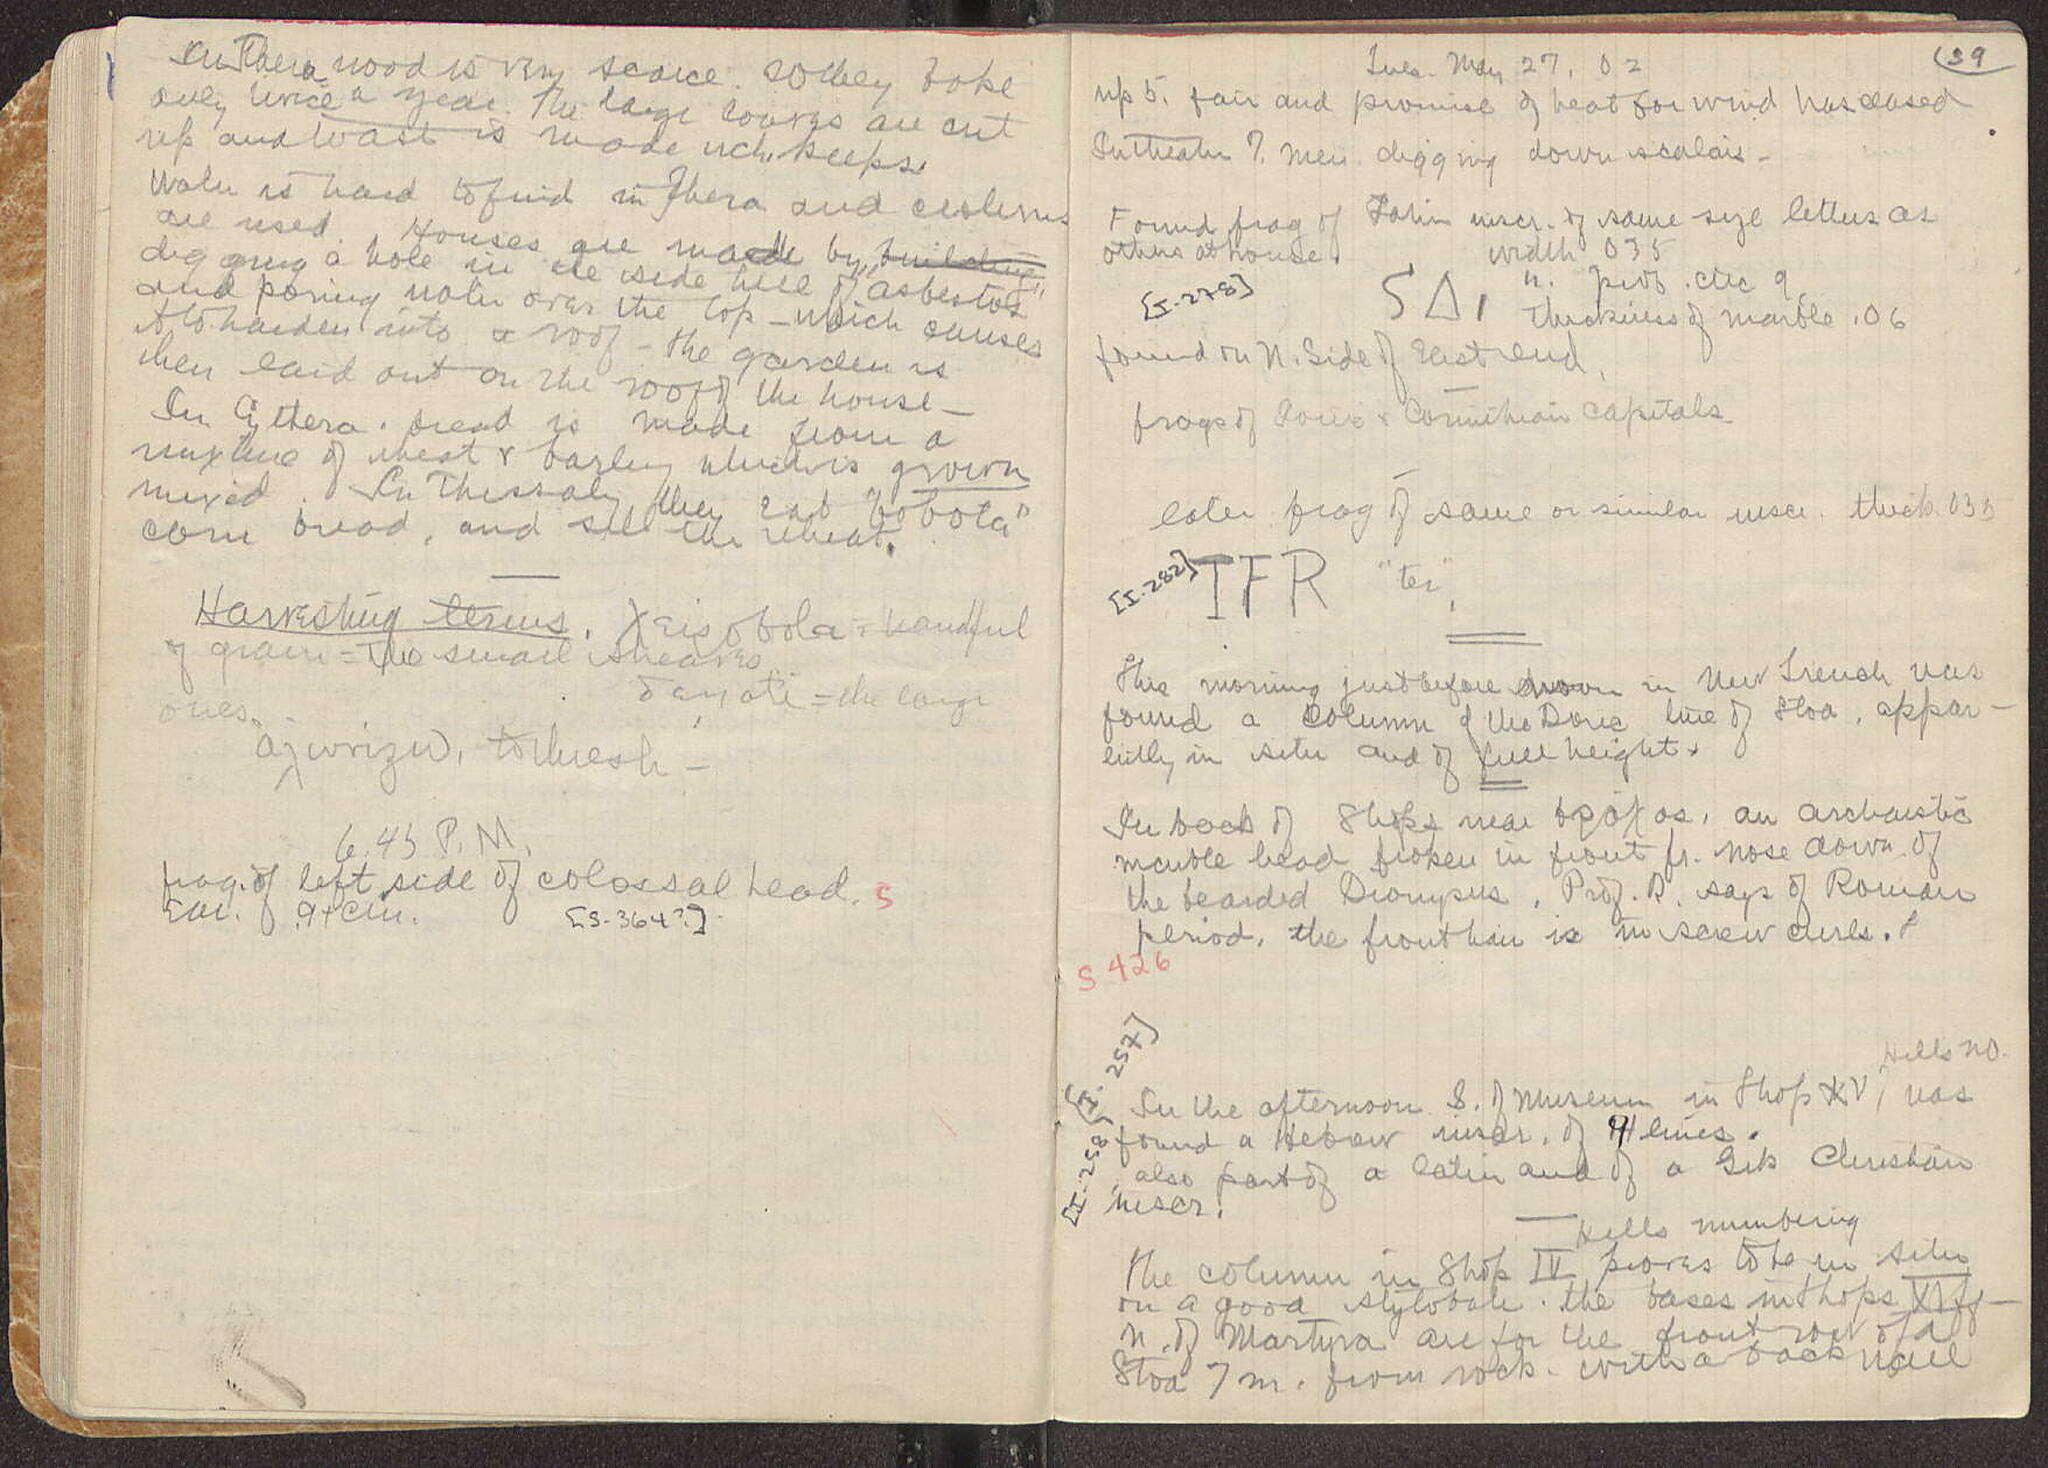 In Thera wood is very scarce. So they bake
only twice a year. The large loaves are cut
up and toast is made wch. keeps.
Water is hard to find in Thera and cisterns
are used. Houses are made by building
digging a hole in the side hill of "asbestos"
and poring water over the top – which causes
it to harden into a roof – the garden is
then laid out on the roof of the house –
In Cythera. bread is made from a
mixture of wheat & barley which is grown
mixed. In Thessaly they eat "bobota"
corn bread, and sell the wheat.
Harvesting terms. Xeirobola = handful
of grain = The small sheaves
= the large
ones.
to thresh –
6.45 P.M.
frag. of left side of colossal head. S
Ear. .9+ cm. [S-364?]
39
Tues. May 27, 02
up 5. fair and promise of heat for wind has ceased
In theater 7 men digging down scalais –
Found frag of Latin inscr. of same size letters as
others at house. width 035
[I-278] S Δ I h. prob. circ 9
thickness of marble .06
found on N. Side of East end.
frags of Ionic & Corinthian capitals
later frag of same or similar inscr. thick 035
[I-282] TFR "ter"
This morning just before noon in New Trench was
found a column of the Doric line of Stoa, appar-
ently in situ and of full height.
In back of Shops near βράχος, an archaistic
marble head broken in front fr. nose down of
the bearded Dionysus. Prof. R. says of Roman
period, the front hair is in screw curls.
S 426
[I-257]
Hills no.
In the afternoon S. of Museum in Shop XV, was
found a Hebrew inscr. of 4 lines.
[I-258]
also part of a latin and of a Grk Christian
inscr.
Hills numbering
The column in Shop IV proves to be in situ
on a good stylobate. the bases in Shops XI ff –
N. of Martyra are for the front row of a
Stoa 7 m. from rock. with a back wall